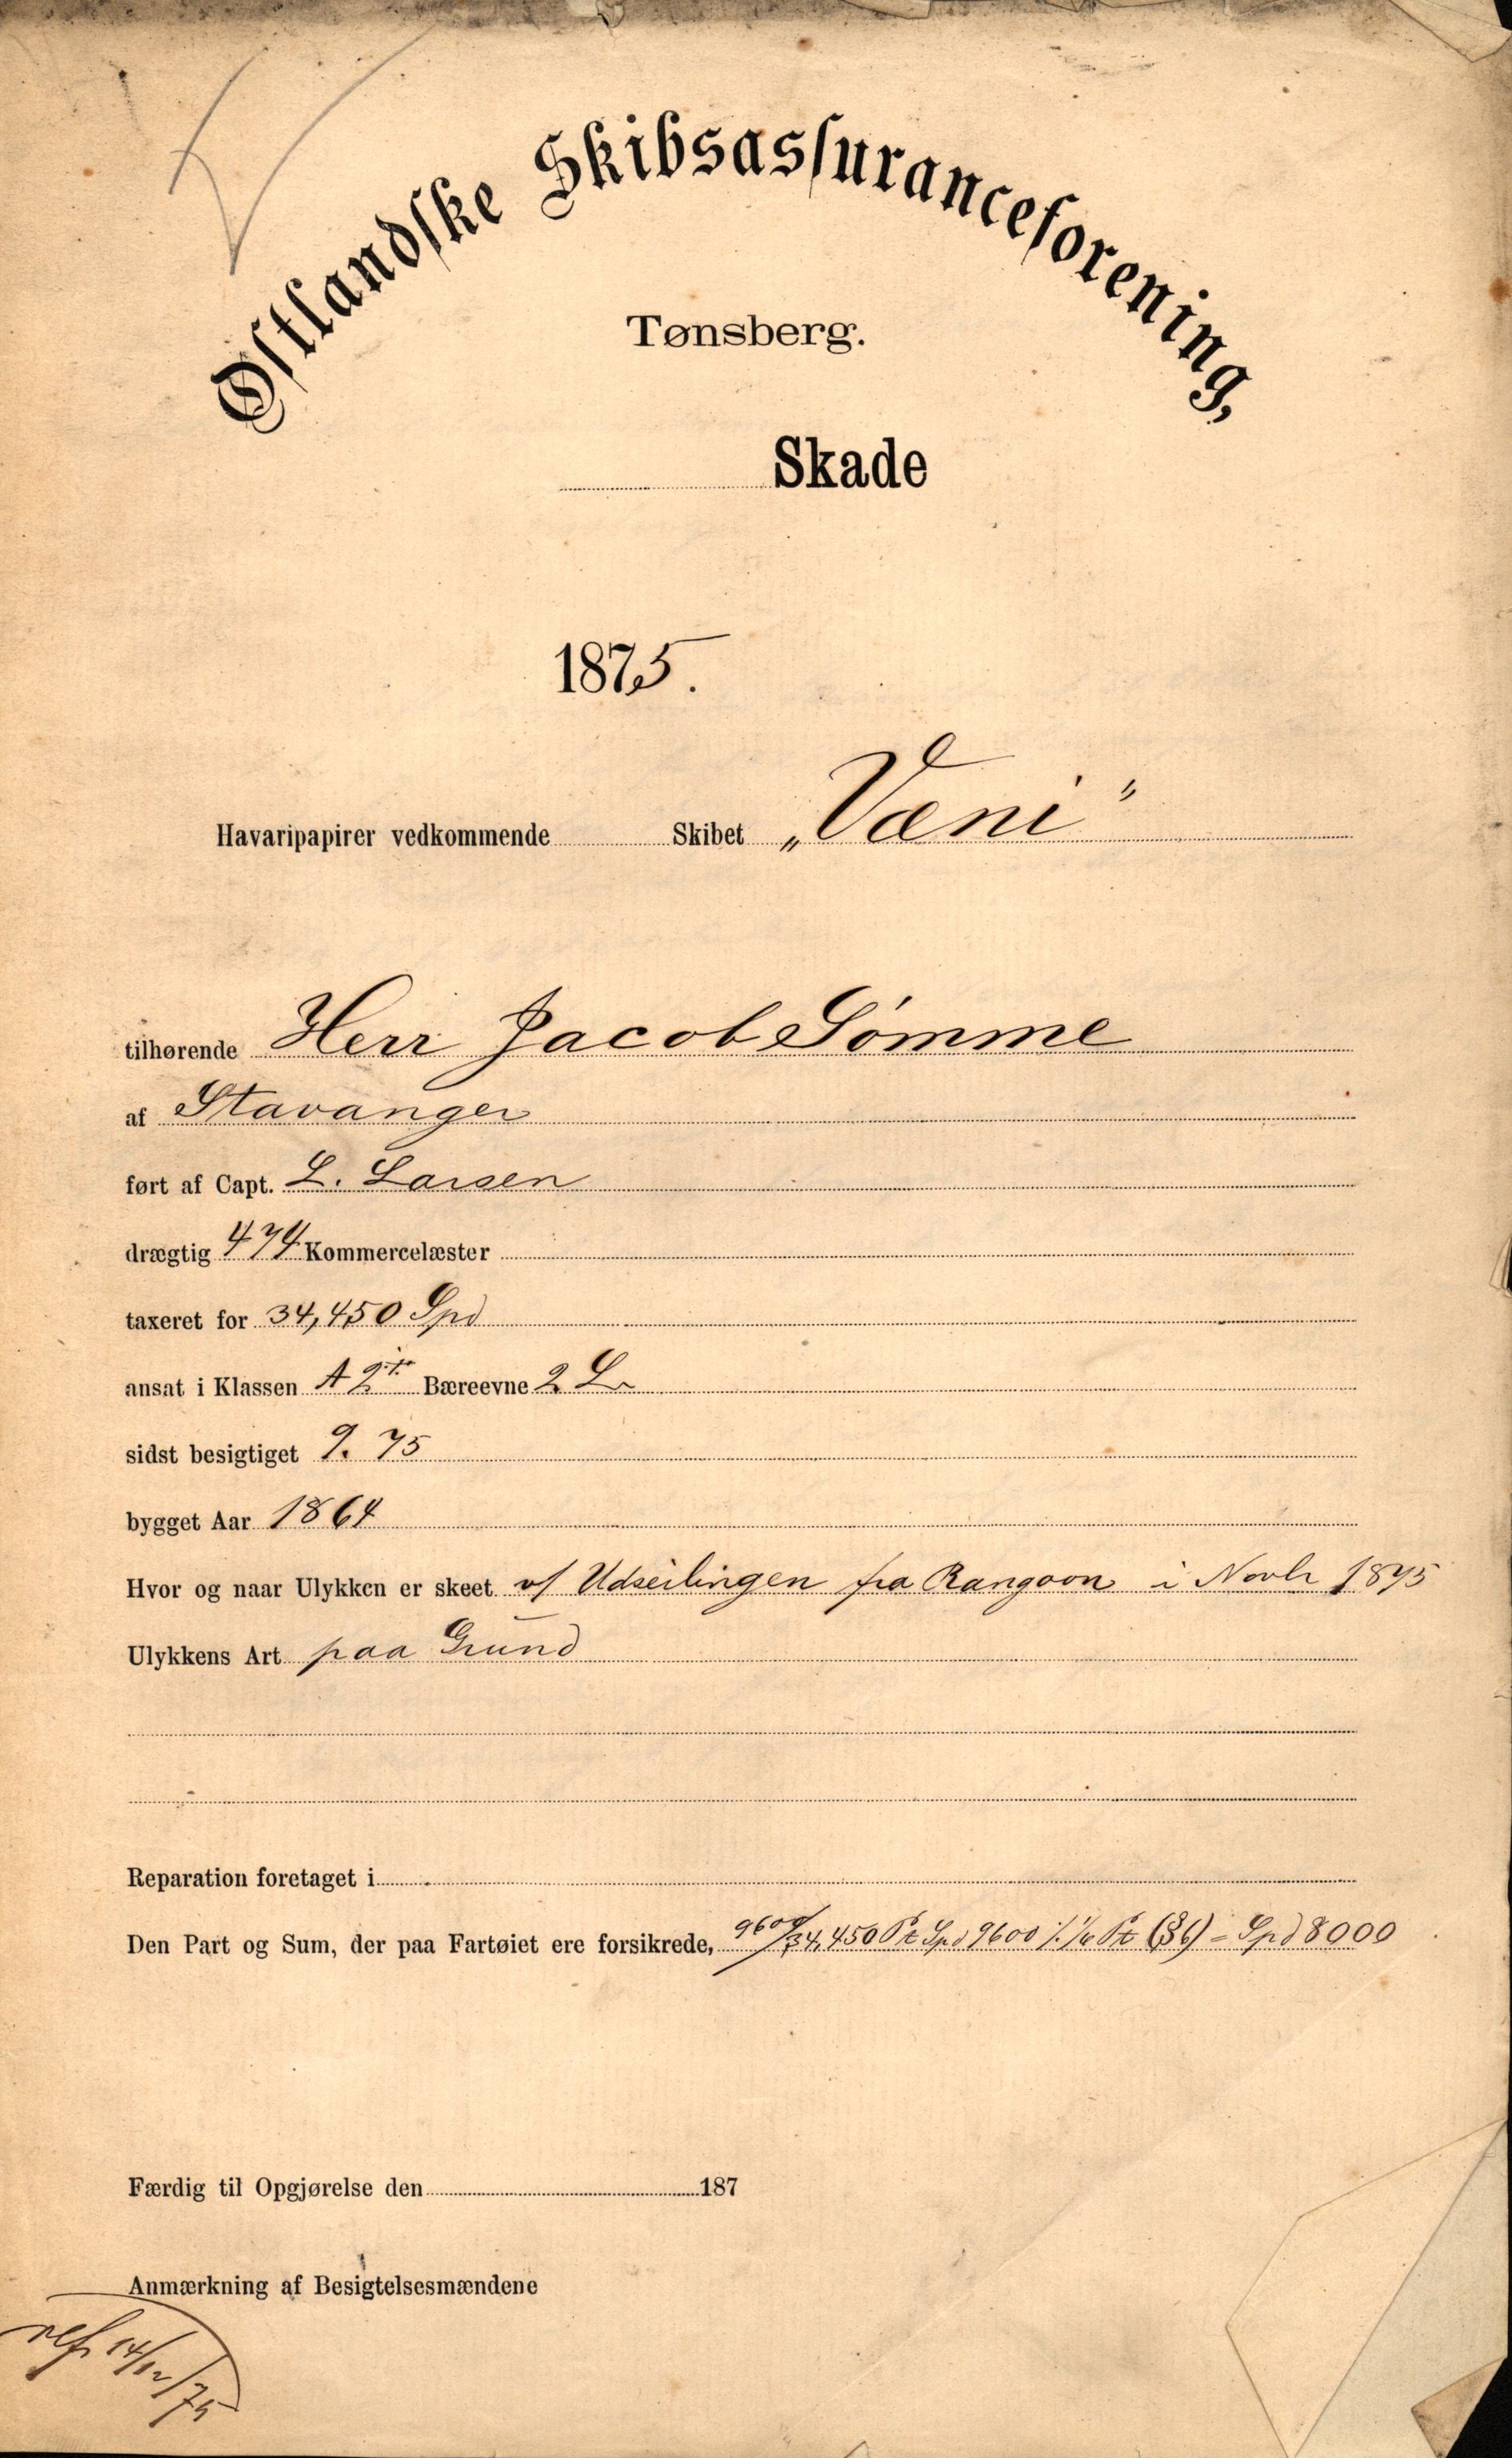 Østlandske Skibsassuranceforening,
Tønsberg.
Skade
1875.
Havaripapirer vedkommende Skibet „Væni"
tilhørende Herr Jacob Sømme
af Stavanger
ført af Capt. L. Larsen
drægtig 474 Kommercelæster
taxeret for 34,450 Spd
ansat i Klassen A 2 Bæreevne 2 L
sidst besigtiget 9. 75
bygget Aar 1864
Hvor og naar Ulykken er skeet v/ Udseilingen fra Rangoon i Novbr 1875
Ulykkens Art paa Grund
Reparation foretaget i
Den Part og Sum, der paa Fartøiet ere forsikrede, 9600/34,450 Pt Spd 9600 ./. 1/6 Pt (§6) = Spd 8000
Færdig til Opgjørelse den 187
Anmærkning af Besigtelsesmændene
ref. 14/12/75